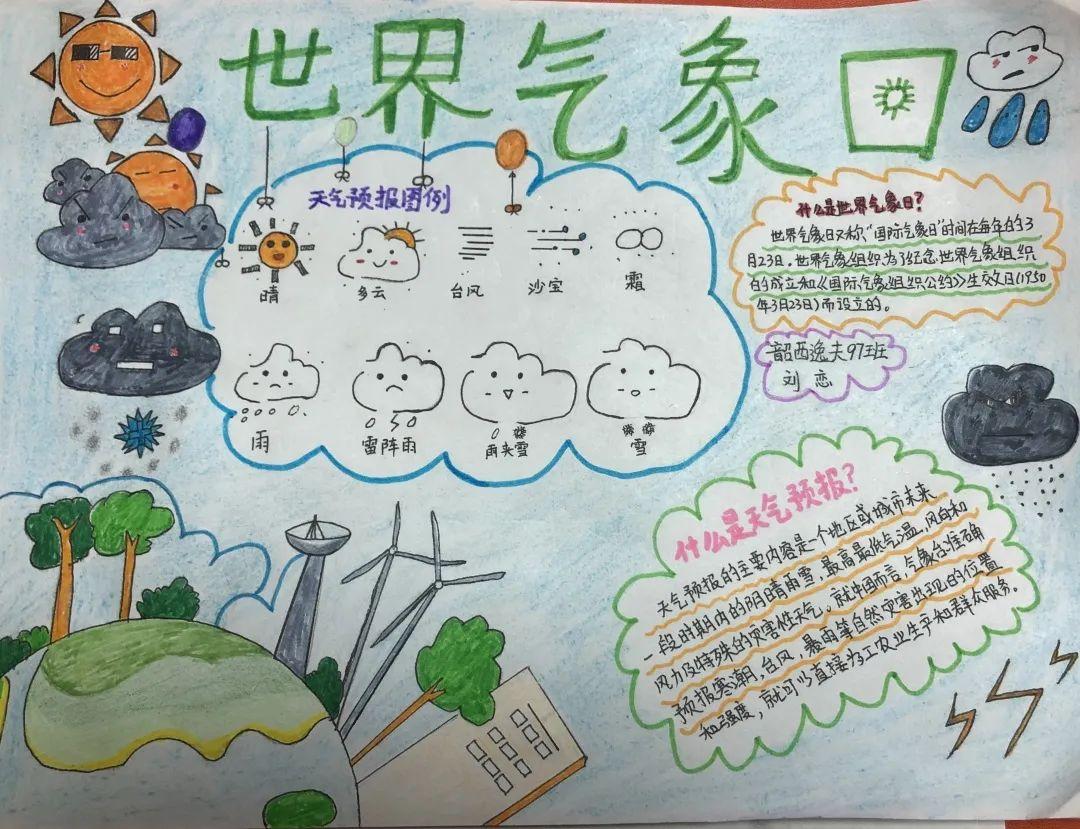 世界气象日
天气预报图例
晴 多云 台风 沙宝 霜
雨 雷阵雨 雨夹雪 雪
什么是世界气象日?
世界气象日又称“国际气象日”时间在每年的3
月23日。世界气象组织为了纪念世界气象组织
的成立和《国际气象组织公约》生效日(1950
年3月23日)而设立的。
韶西逸夫97班
刘恋
什么是天气预报?
天气预报的主要内容是一个地区或城市未来
一段时期内的阴晴雨雪,最高最低气温,风向和
风力及特殊的灾害性天气。就中国而言,气象台准确
预报寒潮,台风,暴雨等自然灾害出现的位置
和强度,就可以直接为工农业生产和群众服务。